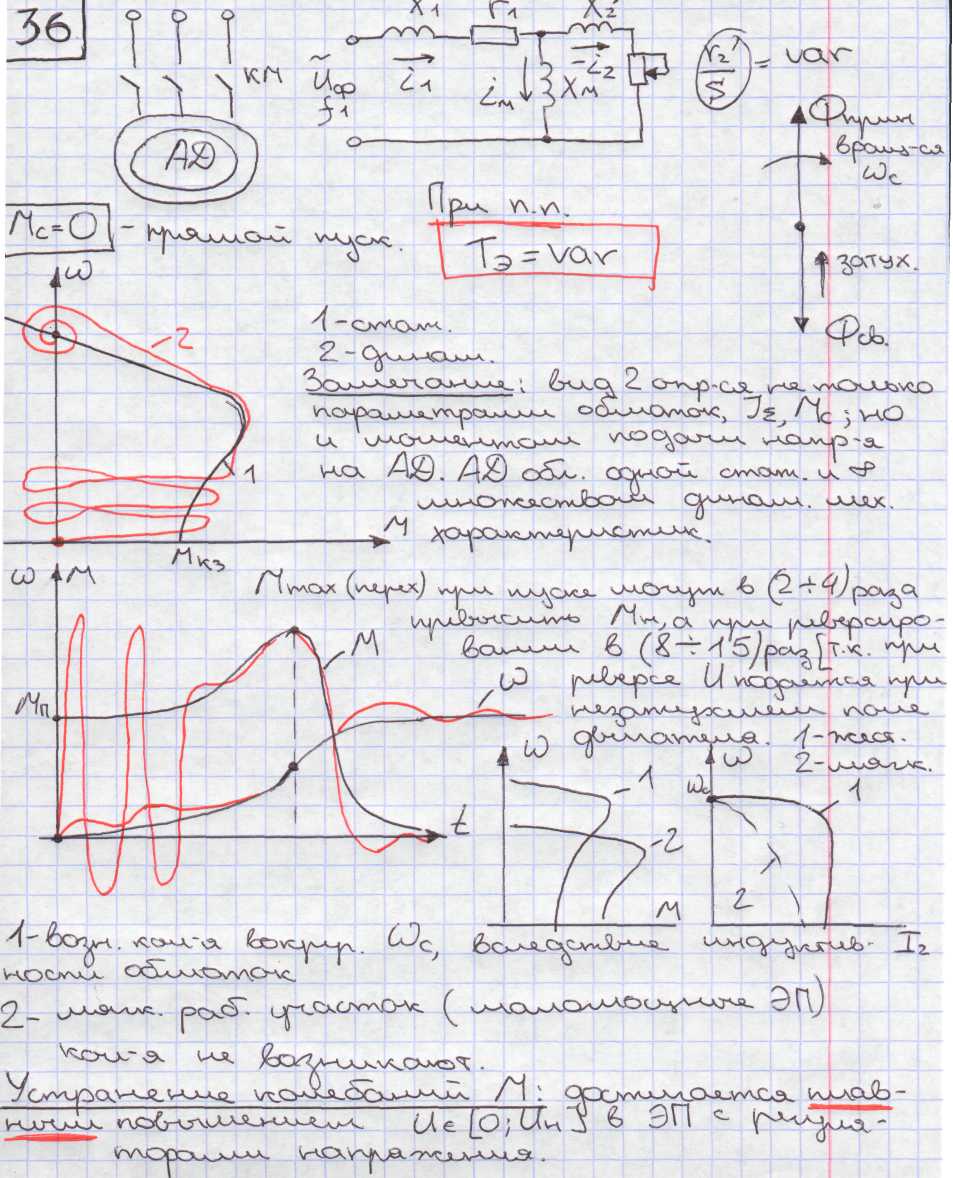 36
КМ
АД
Ũф
f1
x1
r1
i1
iм
xм
x2'
-i2'
r2'/S = var
Фприн
вращ-ся
ωс
затух.
Фсв.
Mс=0 - прямой пуск.
При п.п.
Tэ = var
ω
2
1
M
Mкз
1-стат.
2-динам.
Замечание: вид 2 опр-ся не только
параметрами обмоток, JΣ, Mс; но
и моментом подачи напр-я
на АД. АД обл. одной стат. и ∞
множеством динам. мех.
характеристик.
ω M
Mп
M
ω
t
Mmax (перех) при пуске могут в (2÷4) раза
превысить Mн, а при реверсиро-
вании в (8÷15) раз [т.к. при
реверсе U подается при
незатухшем поле
двигателя.
1-жест.
2-мягк.
ω
1
2
M
ω
ωс
1
2
I2
1-возн. кол-я вокруг ωс, вследствие индуктив-
ности обмоток
2- мягк. раб. участок (маломощные ЭП)
кол-я не возникают.
Устранение колебаний M: достигается плав-
ным повышением U∈[0; Uн] в ЭП с регуля-
торами напряжения.